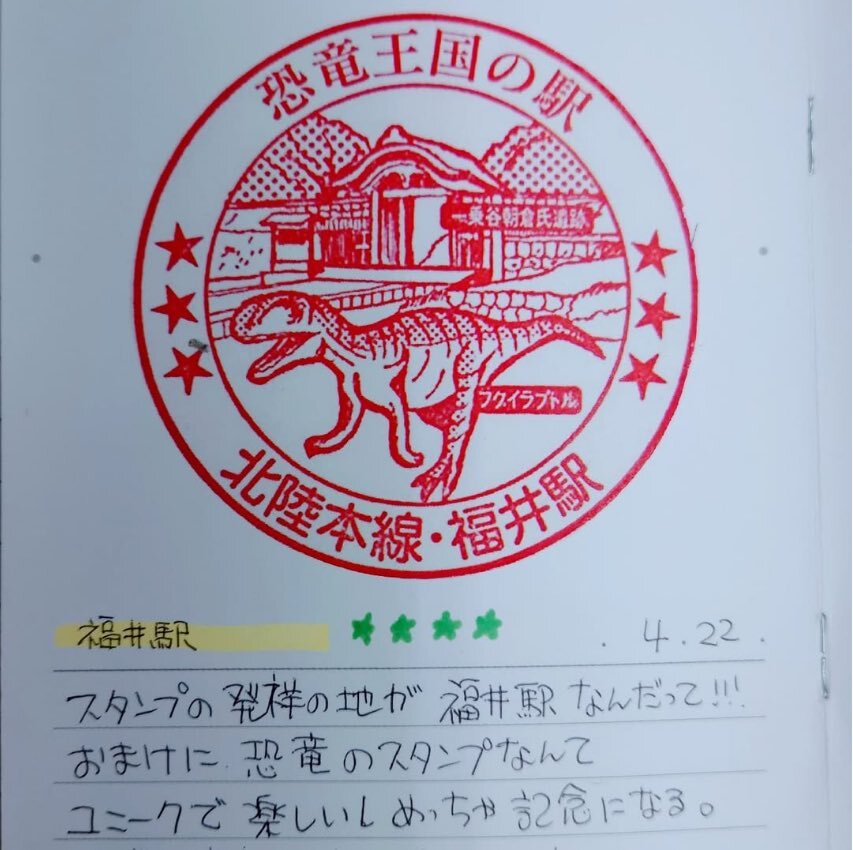 恐竜王国の駅
一乗谷朝倉氏遺跡
フクイラプトル
北陸本線・福井駅
福井駅 ★★★★ . 4.22.
スタンプの発祥の地が 福井駅なんだって!!!
おまけに 恐竜のスタンプなんて
ユニークで楽しいしめっちゃ記念になる。